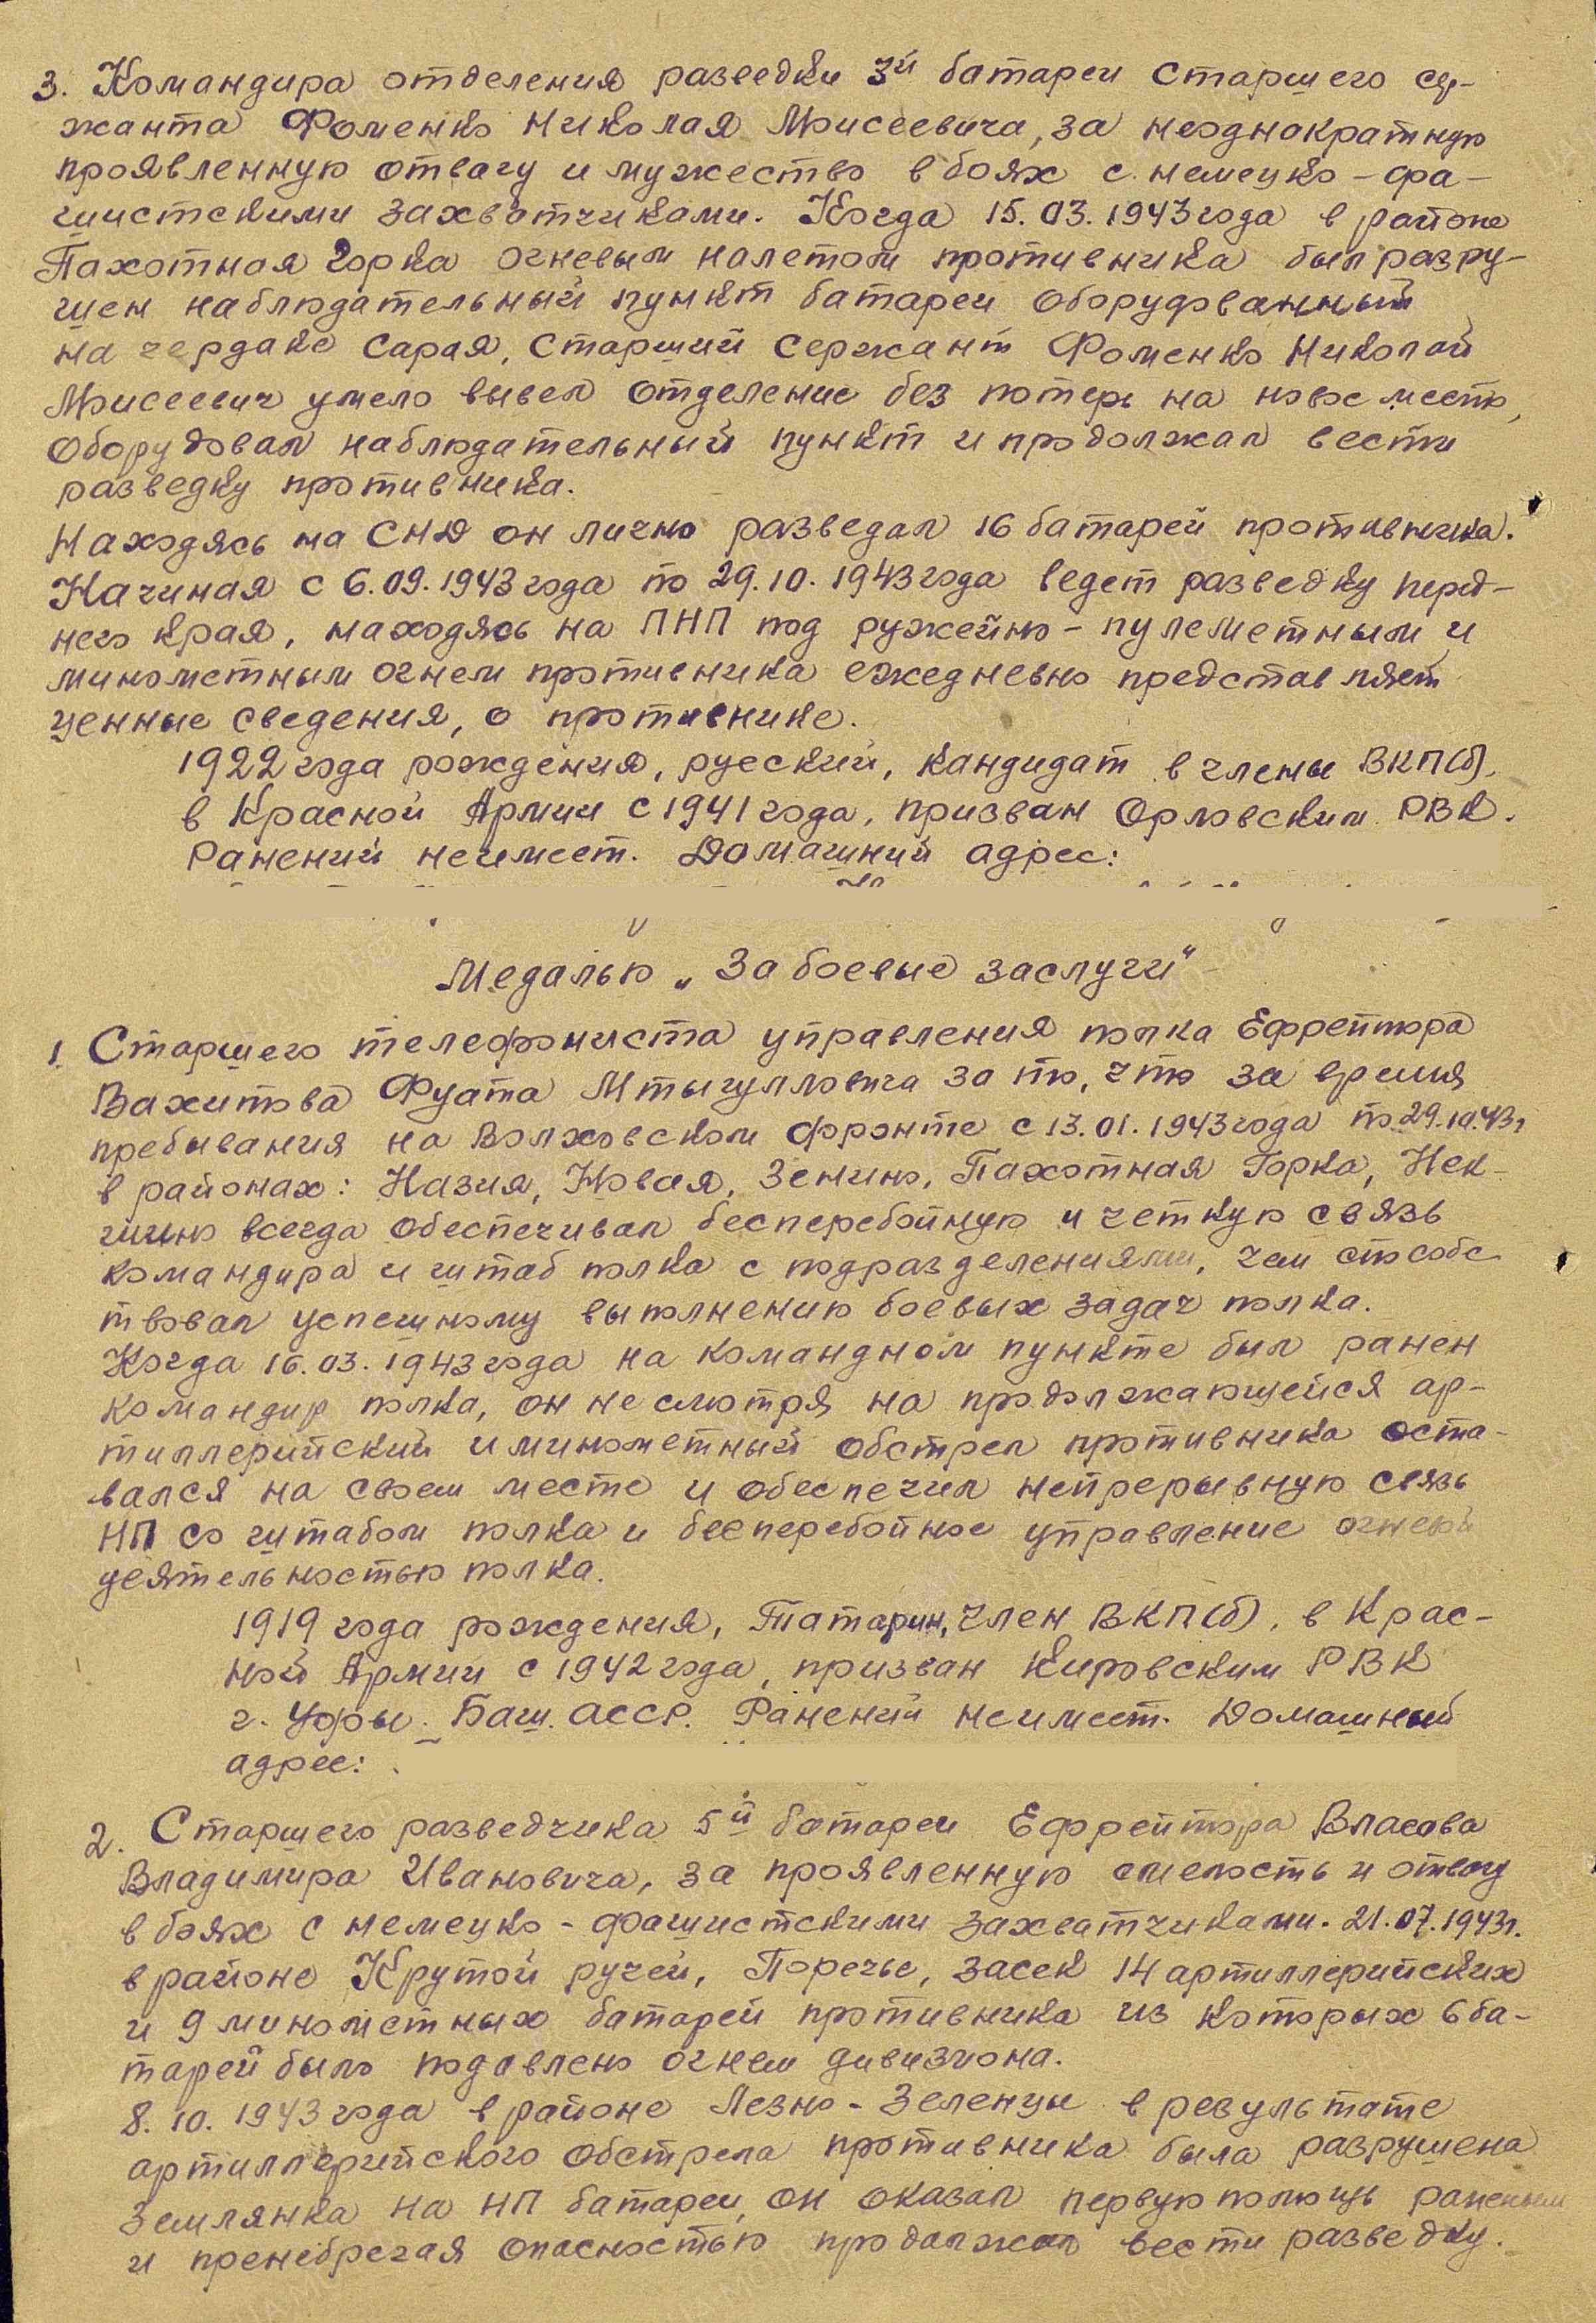 3. Командира отделения разведки 3й батареи старшего сер-
жанта Фоменко Николая Моисеевича, за неоднократную
проявленную отвагу и мужество в боях с немецко-фа-
шистскими захватчиками. Когда 15.03.1943 года в районе
Пахотная Горка огневым налетом противника был разру-
шен наблюдательный пункт батареи оборудованный
на чердаке сарая, старший сержант Фоменко Николай
Моисеевич умело вывел отделение без потерь на новое место,
оборудовал наблюдательный пункт и продолжал вести
разведку противника.
Находясь на СНД он лично разведал 16 батарей противника.
Начиная с 6.09.1943 года по 29.10.1943 года ведет разведку перед-
него края, находясь на ПНП под ружейно-пулеметным и
минометным огнем противника ежедневно представляет
ценные сведения, о противнике.
1922 года рождения, русский, кандидат в члены ВКП(б),
в Красной Армии с 1941 года, призван Орловским РВК.
Ранений неимеет. Домашний адрес:
Медалью „За боевые заслуги"
1 Старшего телефониста управления полка Ефрейтора
Вахитова Фуата Мтыгулловича за то, что за время
пребывания на Волховском фронте с 13.01.1943 года по 29.10.43г
в районах: Назия, Новая, Зенино, Пахотная Горка, Нек-
шино всегда обеспечивал бесперебойную и четкую связь
командира и штаб полка с подразделениями, чем способс
твовал успешному выполнению боевых задач полка.
Когда 16.03.1943 года на командном пункте был ранен
командир полка, он не смотря на продолжающейся ар-
тиллерийский и минометный обстрел противника оста-
вался на своем месте и обеспечил непрерывную связь
НП со штабом полка и бесперебойное управление огневой
деятельностью полка.
1919 года рождения, Татарин, член ВКП(б), в Крас-
ной Армии с 1942 года, призван Кировским РВК
г. Уфы. Баш. АССР. Ранений неимеет. Домашный
адрес:
2. Старшего разведчика 5й батареи Ефрейтора Власова
Владимира Ивановича, за проявленную смелость и отвагу
в боях с немецко-фашистскими захватчиками. 21.07.1943г.
в районе Крутой ручей, Поречье, засек 14 артиллерийских
и 9 минометных батарей противника из которых 6 ба-
тарей было подавлено огнем дивизиона.
8.10.1943 года в районе Лезно-Зеленцы в результате
артиллерийского обстрела противника была разрушена
землянка на НП батареи, он оказал первую помощь раненым
и пренебрегая опасностью продолжал вести разведку.